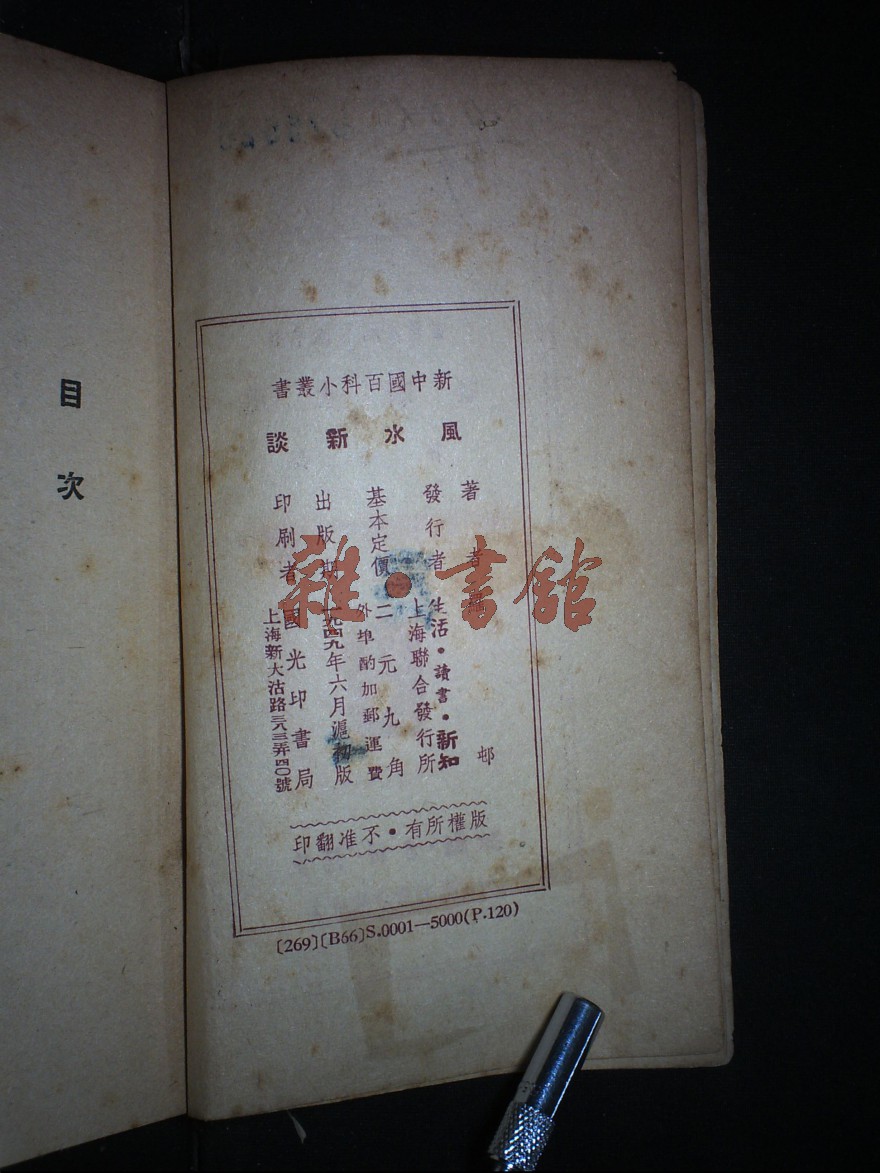 新中國百科小叢書
風水新談
著者 邨
發行者 生活・讀書・新知
上海聯合發行所
基本定價 二元九角
外埠酌加郵運費
出版期 一九四九年六月滬初版
印刷者 國光印書局
上海新大沽路三八三弄四〇號
版權所有・不准翻印
[269][B66]S.0001—5000(P.120)
目次
雜・書館